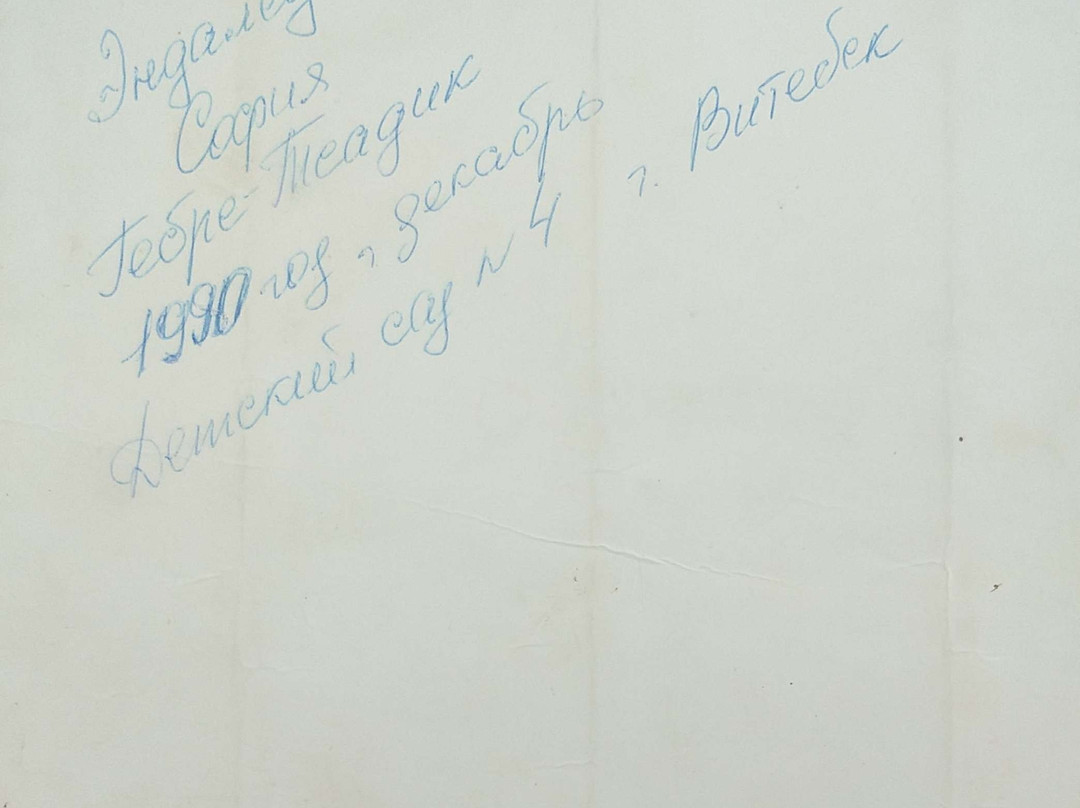 София
Гебре-Тсадик
1990 год, декабрь
Детский сад N 4 г. Витебск